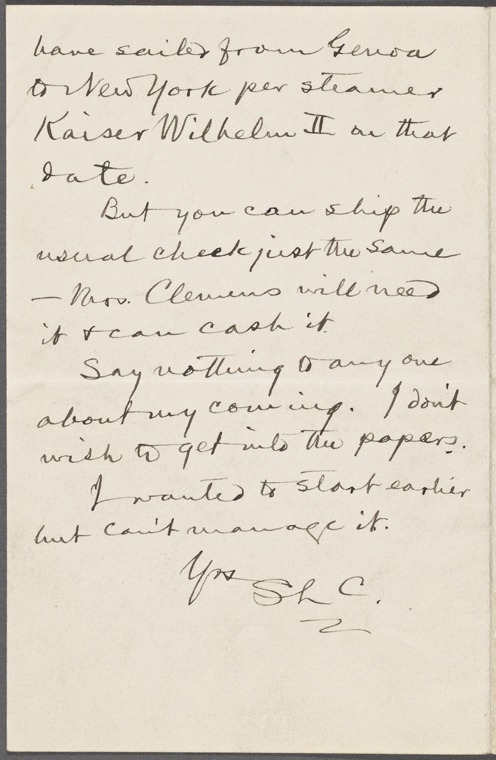 have sailed from Genoa
to New York per steamer
Kaiser Wilhelm II on that
date.
But you can ship the
usual check just the same
— Mrs. Clemens will need
it & can cash it.
Say nothing to any one
about my coming. I don't
wish to get into the papers.
I wanted to start earlier
but can't manage it.
Yrs
SLC.